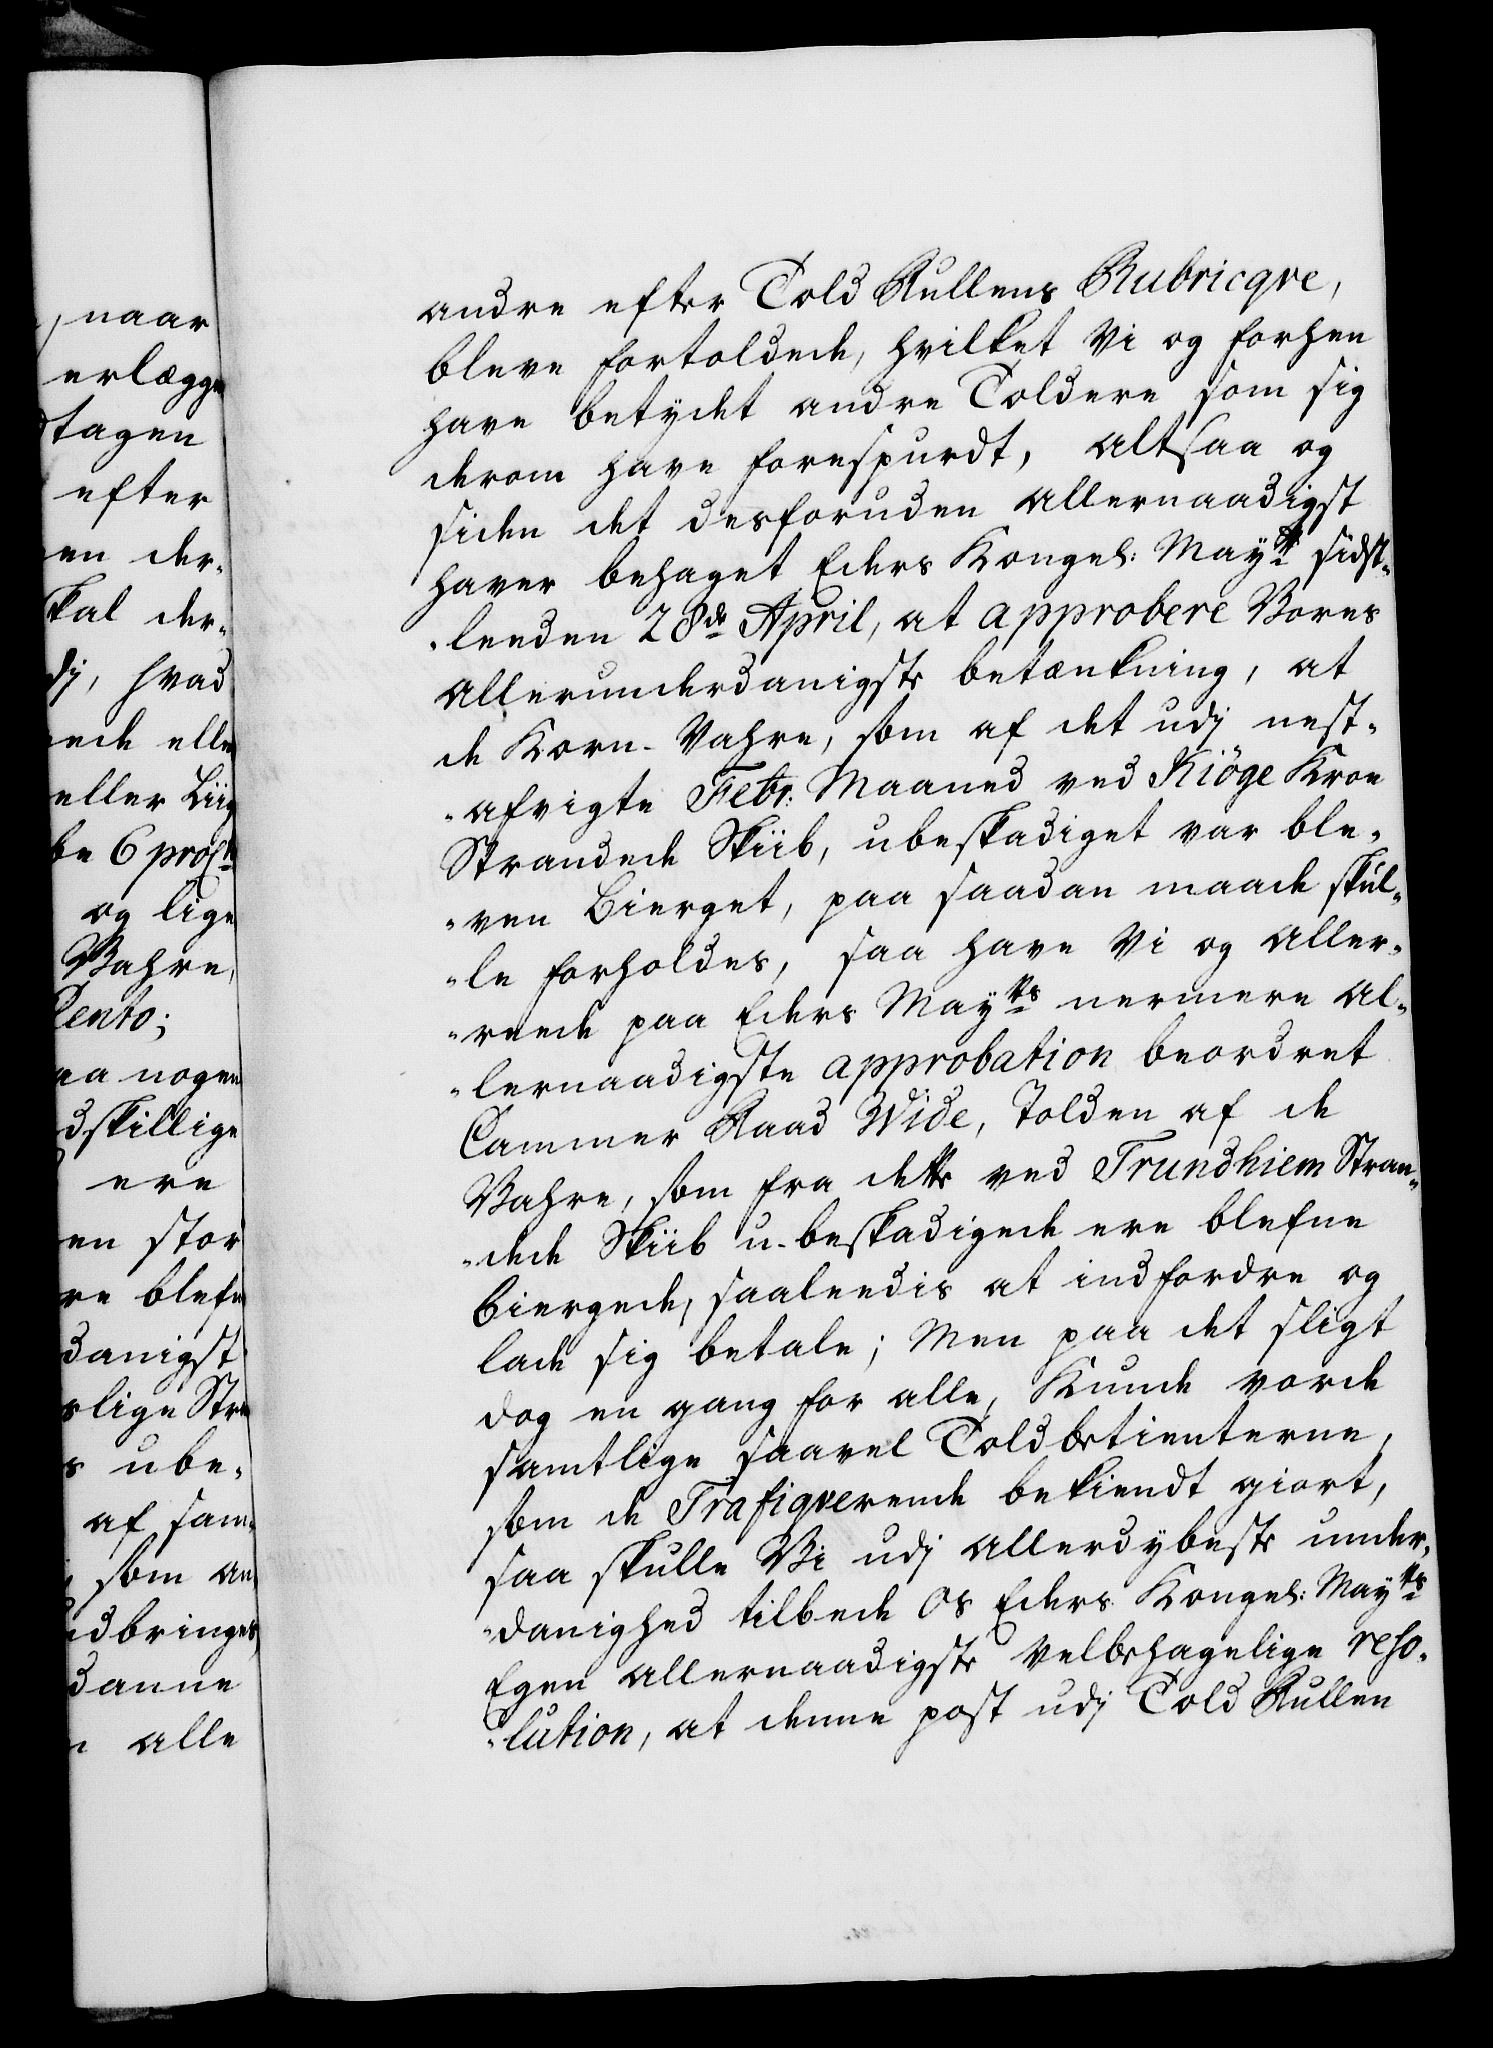 naar
erlægge
tagen
efter
en der-
skal der-
dj, hvad
ede elle
eller Liig
be 6 pro
og lige
Vahre,
Cento;
aa nogen
dskillige
ere
en stor
re blefn
danigst
slige Stra
s ube-
af sam-
som an
dbringes
danne
alle
andre efter Told Rullens Rubricqve,
bleve fortoldede, hvilket Vi og forhen
have betydet andre Toldere som sig
derom have forespurdt, altsaa og
siden det desforuden allernaadigst
haver behaget Eders Kongel: Maytt sidst-
-leeden 28de April, at approbere Vores
allerunderdanigste betænkning, at
de Korn-Vahre, som af det udj nest-
-afvigte Febr: Maaned ved Kiöge Kroe
Strandede Skiib, ubeskadiget var ble-
-ven Bierget, paa saadan maade skul-
-le forholdes, saa have Vi og aller-
-reede paa Eders Mayts nermere al-
-lernaadigste approbation beordret
Cammer Raad Wide, Tolden af de
Vahre, som fra dette ved Trundhiem Stran-
-dede Skiib u-beskadigede ere blefne
biergede, saaleedis at indfordre og
lade sig betale; Men paa det sligt
dog en gang for alle, Kunde vorde
samtlige saavel Toldbetienterne,
som de Trafiqverende bekiendt giort,
saa skulle Vi udj allerdybeste under-
-danighed tilbede Os Eders Kongel: Mayts
Egen allernaadigste Velbehagelige reso-
-lution, at denne post udj Told Rullen